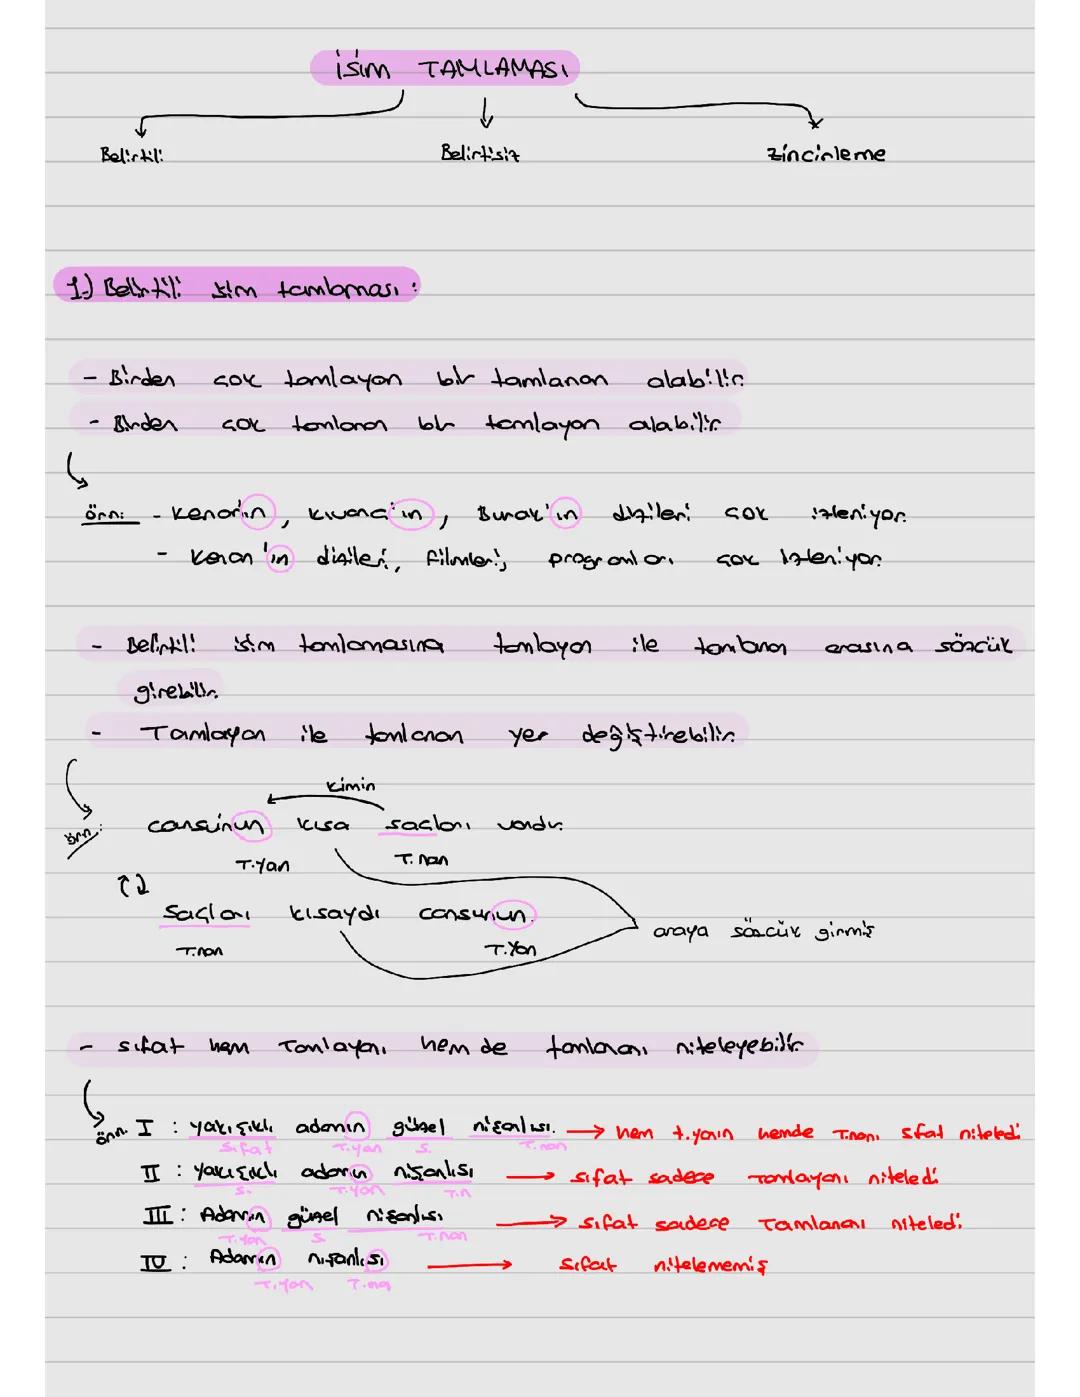 İSİM TAMLAMASI
Belirtili Belirtisiz Zincirleme
1-) Belirtili isim tamlaması :
- Birden çok tamlayan bir tamlanan alabilir.
- Birden çok tamlanan bir tamlayan alabilir.
örn: - Kenan'ın, Kıvanç'ın, Burak'ın dizileri çok izleniyor.
- Kenan'ın dizileri, filmleri, programları çok izleniyor.
- Belirtili isim tamlamasına tamlayan ile tamlanan arasına sözcük
girebilir.
- Tamlayan ile tamlanan yer değiştirebilir.
kimin
örn: cansunun kısa saçları vardır.
T.yan T.nan
Saçları kısaydı cansunun.
araya sözcük girmiş
T.nan T.yan
- sıfat hem Tamlayanı hem de tamlananı niteleyebilir.
örn. I : yakışıklı adamın güzel nişanlısı. → hem t.yanın hemde T.nanı sıfat niteledi
sıfat T.yan s. T.nan
II : yakışıklı adamın nişanlısı → sıfat sadece Tamlayanı niteledi
s. T.yan T.n
III : Adamın güzel nişanlısı → sıfat sadece Tamlananı niteledi
T.yan s T.nan
IV : Adamın nişanlısı → sıfat nitelememiş
T.yan T.na